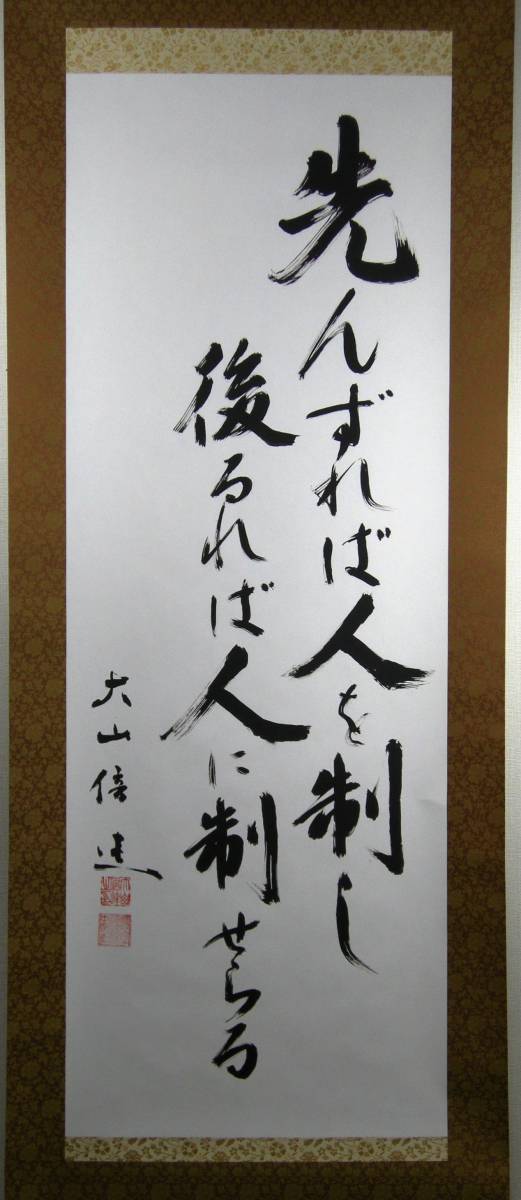 先んずれば人を制し
後るれば人に制せらる
大山倍達